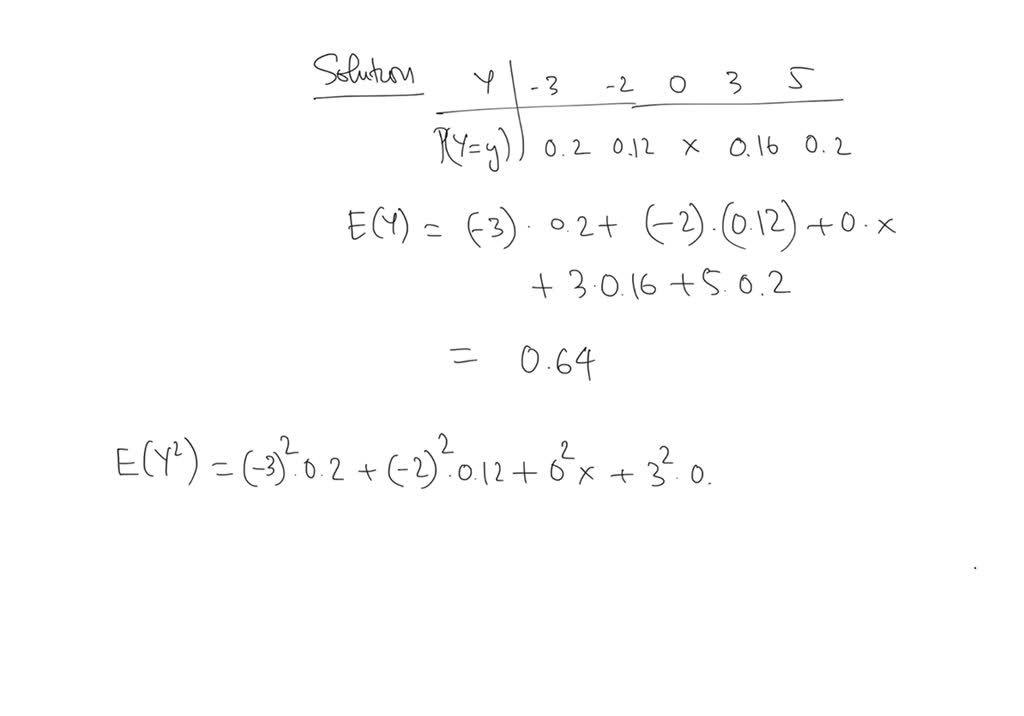 Solution Y -3 -2 0 3 5
P(Y=y) 0.2 0.12 x 0.16 0.2
E(Y) = (-3) · 0.2 + (-2).(0.12) + 0 · x
+ 3·0.16 + 5·0.2
= 0.64
E(Y²) = (-3)²·0.2 + (-2)²·0.12 + 0²x + 3²·0.